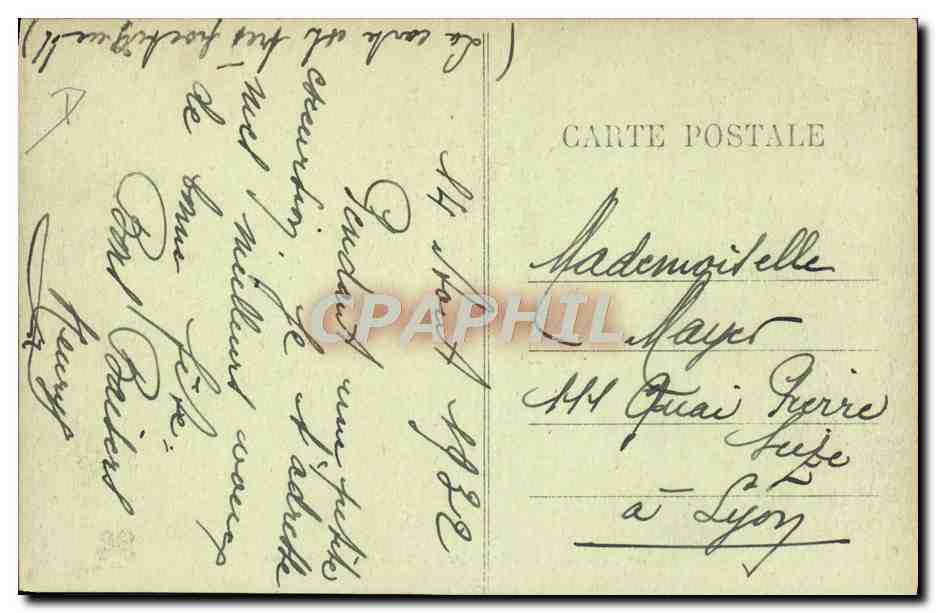 (La carte est très poétique !!)
14 Aout 1922
Pendant une petite
excursion je t'adresse
mes meilleurs voeux
de bonne fête.
Bons Baisers
CARTE POSTALE
Mademoiselle
Mayer
111 Quai Pierre
Scize
à Lyon
CPAPHIL